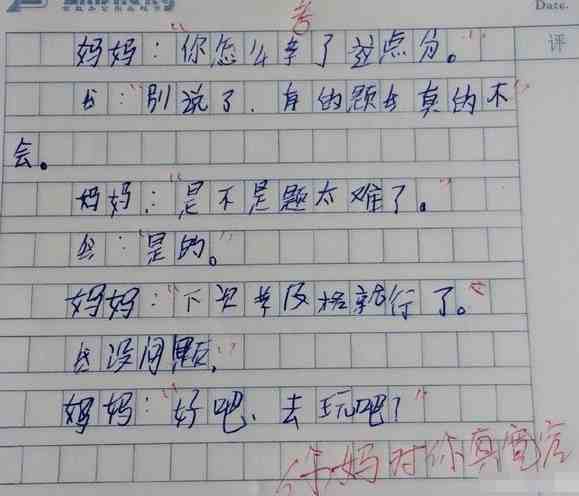 Date.
评
考
妈妈:“你怎么考了这点分。”
我:“别说了,有的题我真的不
会。
妈妈:“是不是题太难了。”
我:“是的。”
妈妈:“下次考及格就行了。”
我没问题。”
妈妈:“好吧,去玩吧?”
你妈对你真宽容